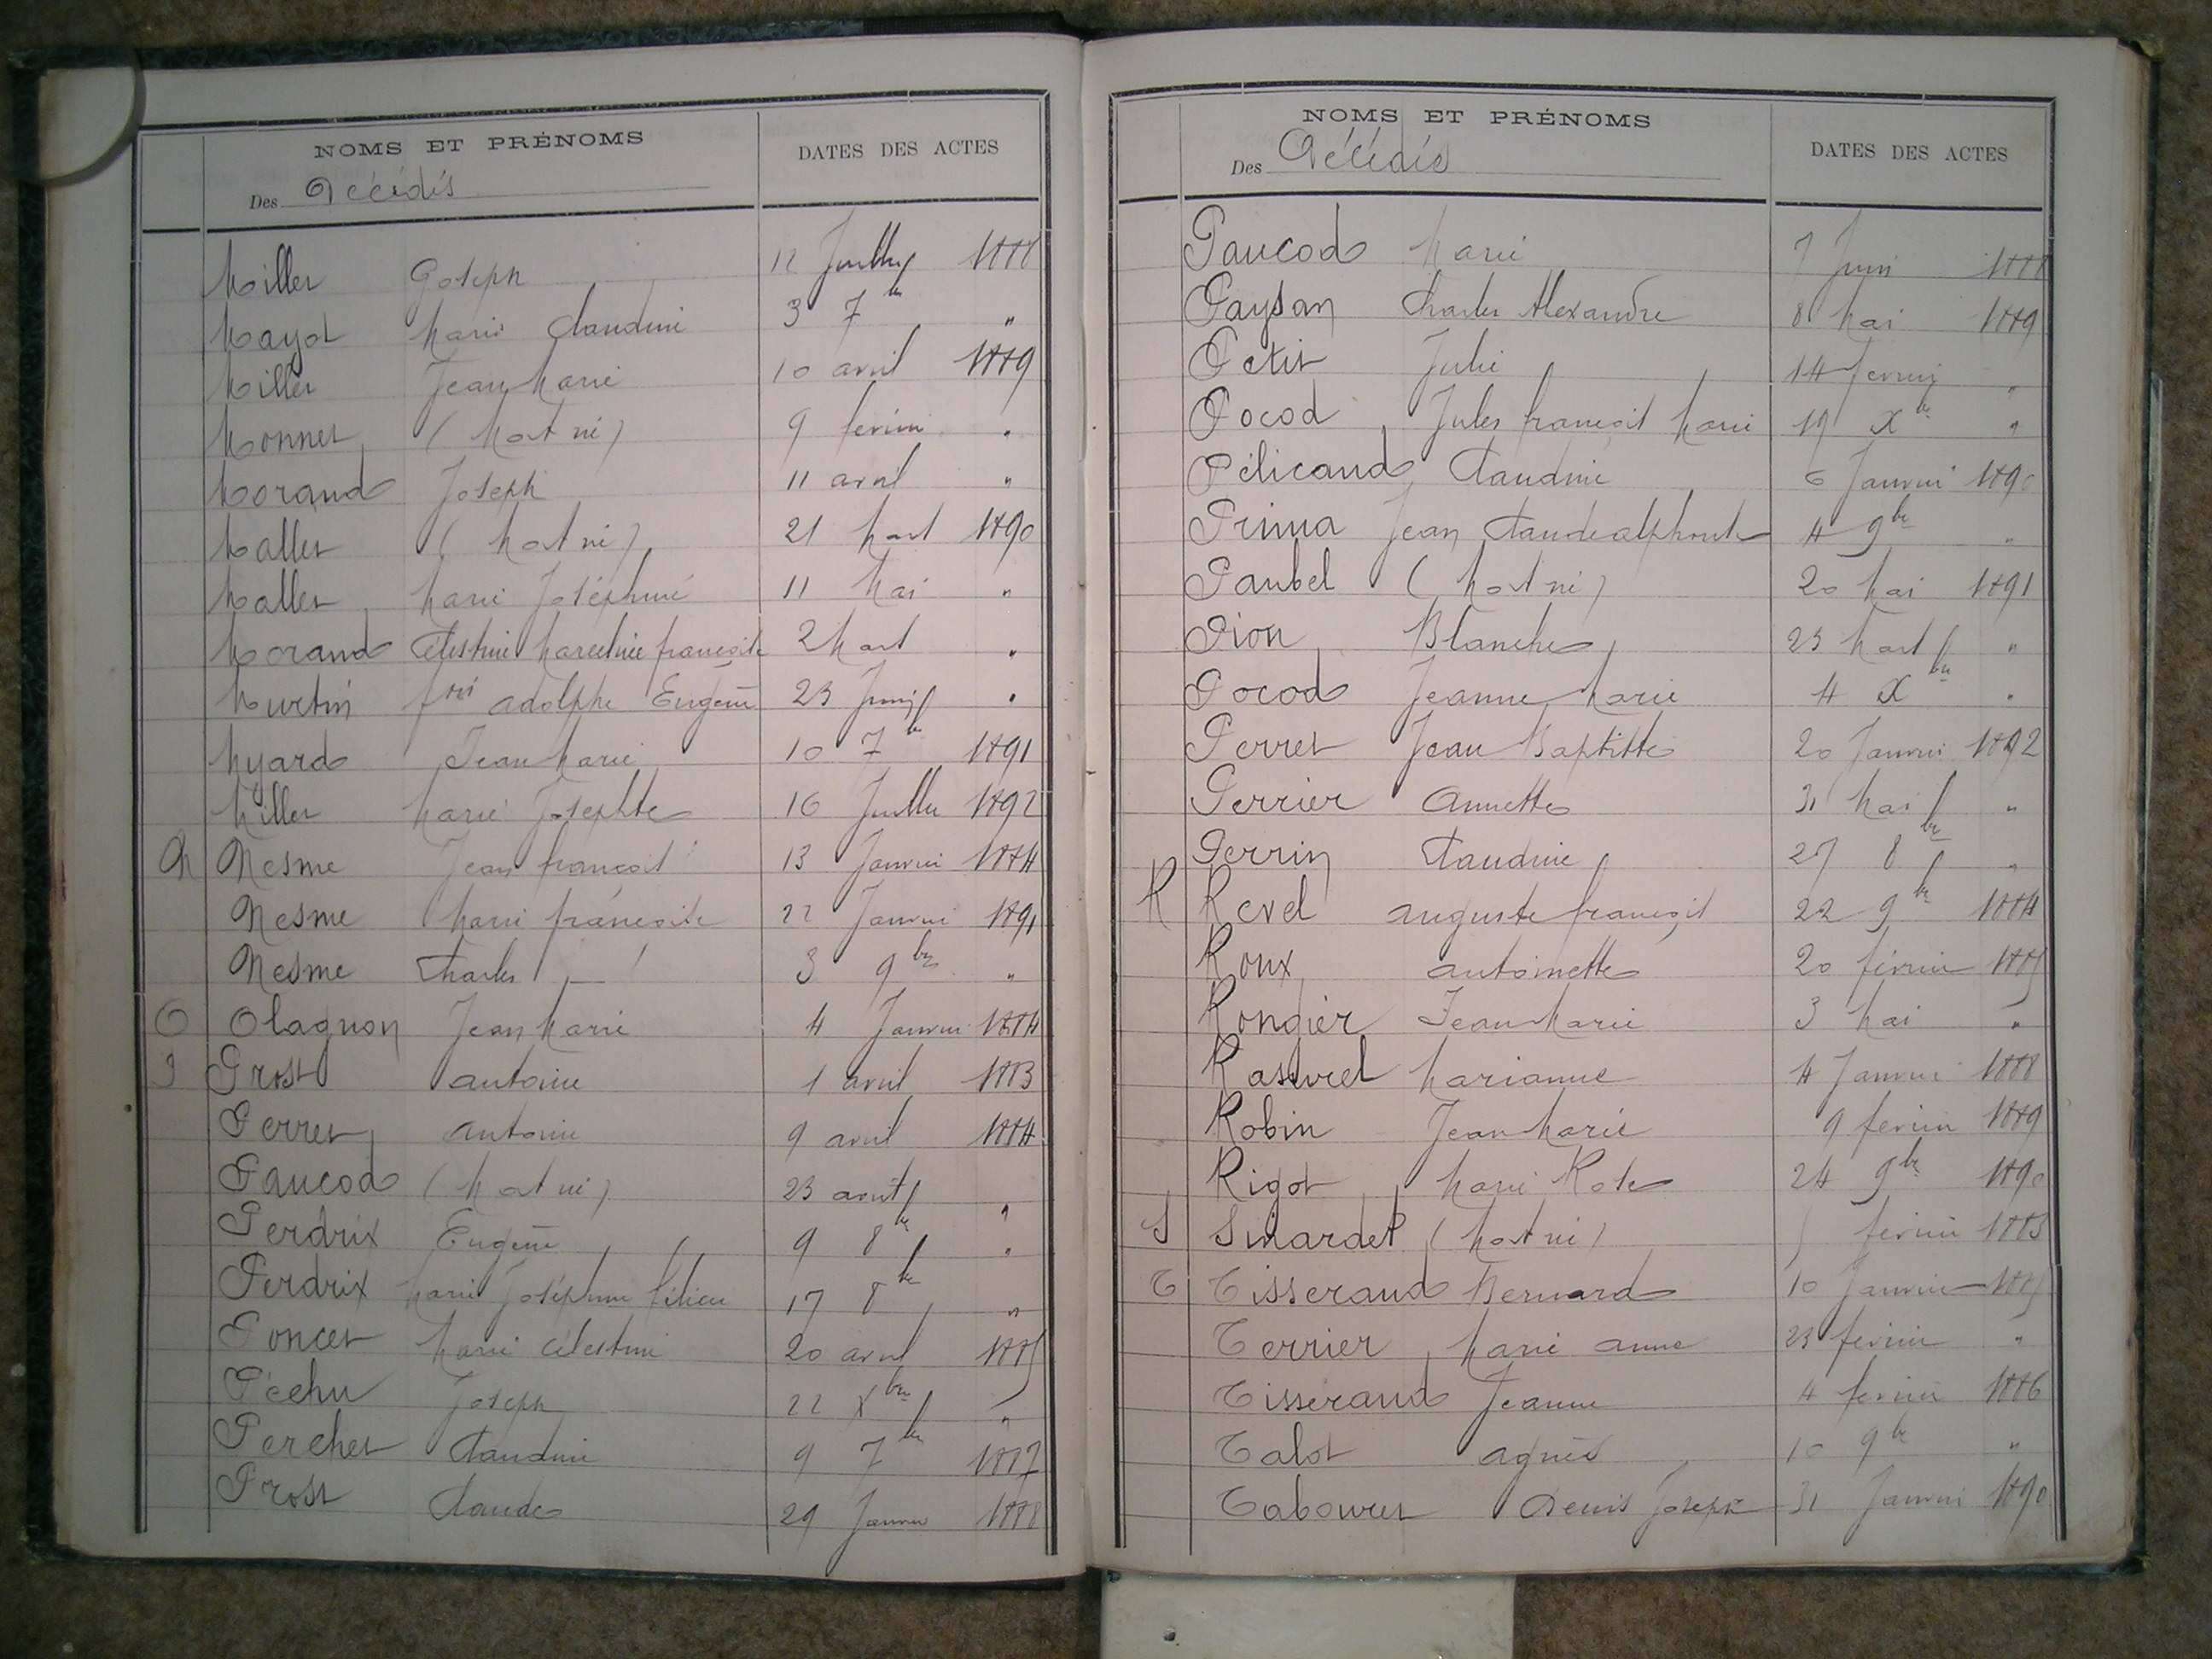 NOMS ET PRÉNOMS DATES DES ACTES
Des Décédés
Miller Joseph 12 Juillet 1888
Mayol Marie Claudine 3 7bre "
Miller Jean Marie 10 avril 1889
Monnet (Mort né) 9 février "
Morand Joseph 11 avril "
Mallet (Mort né) 21 Mars 1890
Mallet Marie Joséphine 11 Mai "
Morand Célestine Marceline françoise 2 Mars "
Murtin fois adolphe Eugène 23 Juin "
Myard Jean Marie 10 7bre 1891
Miller Marie Josephte 16 Juillet 1892
N Nesme Jean françois 13 Janvier 1884
Nesme Marie françoise 22 Janvier 1891
Nesme Charles 3 9bre "
O Olagnon Jean Marie 4 Janvier 1884
P Prost antoine 1 avril 1883
Perret antoine 9 avril 1884
Paucod (Mort né) 23 août "
Perdrix Eugène 9 8bre "
Perdrix Marie Joséphine félicie 17 8bre "
Poncet Marie Célestine 20 avril 1885
Péchu Joseph 22 Xbre "
Perchet Claudine 9 7bre 1887
Prost Claude 29 Janvier 1888
NOMS ET PRÉNOMS DATES DES ACTES
Des Décédés
Paucod Marie 7 Juin 1888
Paysan Charles Alexandre 8 Mai 1889
Petit Julie 14 fevrier "
Pocod Jules françois Marie 19 Xbre "
Pélicand Claudine 6 Janvier 1890
Prima Jean Claude alphonse 4 9bre "
Paubel (Mort né) 20 Mai 1891
Pion Blanche 23 Mars "
Pocod Jeanne Marie 4 Xbre "
Perret Jean Baptiste 20 Janvier 1892
Perrier Annette 31 Mai "
Perrin Claudine 27 8bre "
R Revel auguste françois 22 9bre 1884
Roux antoinette 20 février 1885
Rongier Jean Marie 3 Mai "
Marianne 4 Janvier 1888
Robin Jean Marie 9 février 1889
Rigot Marie Rose 24 9bre 1890
S Sinardet (Mort né) février 1883
T Tisserand Bernard 10 Janvier 1885
Terrier Marie anne 23 février "
Tisserand Jeanne 4 fevrier 1886
Talot agnès 10 9bre "
Tabouret Denis Joseph 31 Janvier 1890